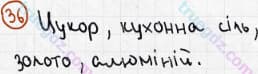 36 Цукор, кухонна сіль,
золото, алюміній.